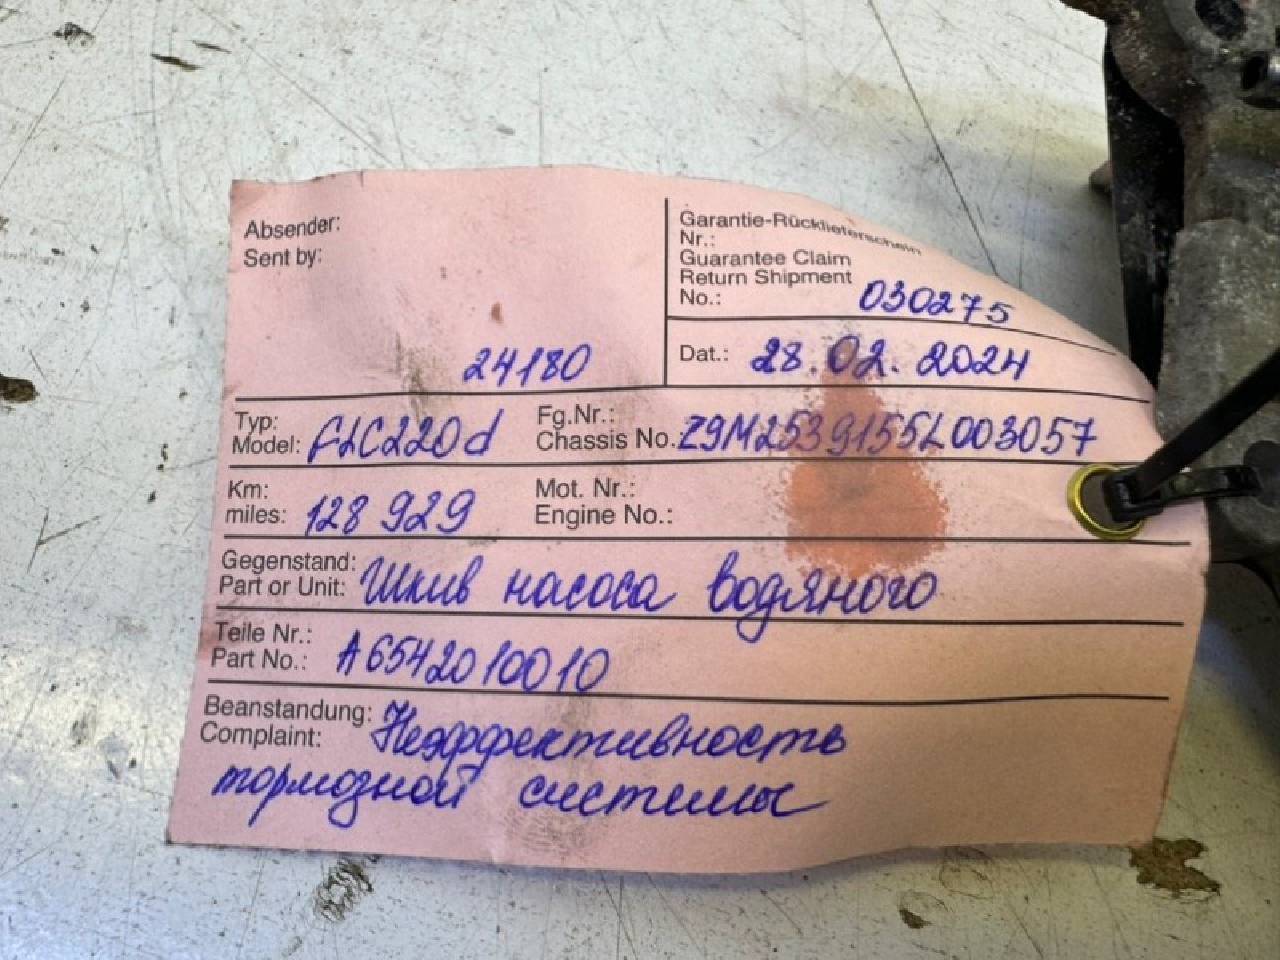 Absender:
Sent by:
24180
Garantie-Rücklieferschein
Nr.:
Guarantee Claim
Return Shipment
No.: 030275
Dat.: 28.02.2024
Typ:
Model: GLC220d
Fg.Nr.:
Chassis No. Z9M2539155L003057
Km:
miles: 128 929
Mot. Nr.:
Engine No.:
Gegenstand:
Part or Unit: Шкив насоса водяного
Teile Nr.:
Part No.: A6542010010
Beanstandung:
Complaint: Неэффективность
тормозной системы